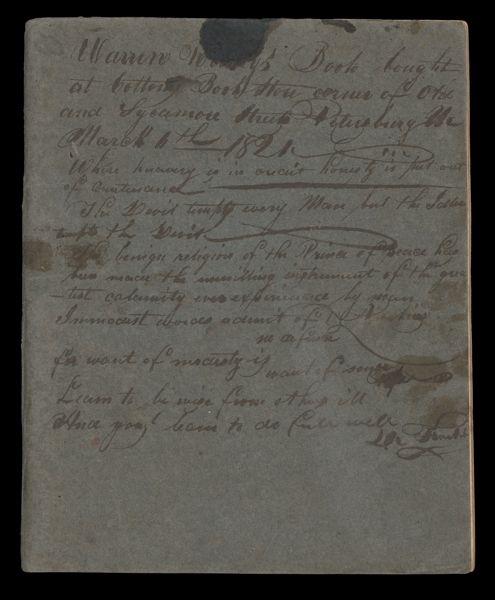 Warren Book bought
at Cottoms Book Store corner of Old
and Sycamore Streets Petersburg Va
March 6th 1821
Where knavery is in credit honesty is put out
of countenance
The Devil tempts every Man but the Idler
tempts the Devil
The benign religion of the Prince of Peace has
been made the unwilling instrument of the grea
test calamity ever experienced by man
Immodest words admit of no
defence
for want of modesty is want of sense
Learn to be wise from others ill
And you'l learn to do full well